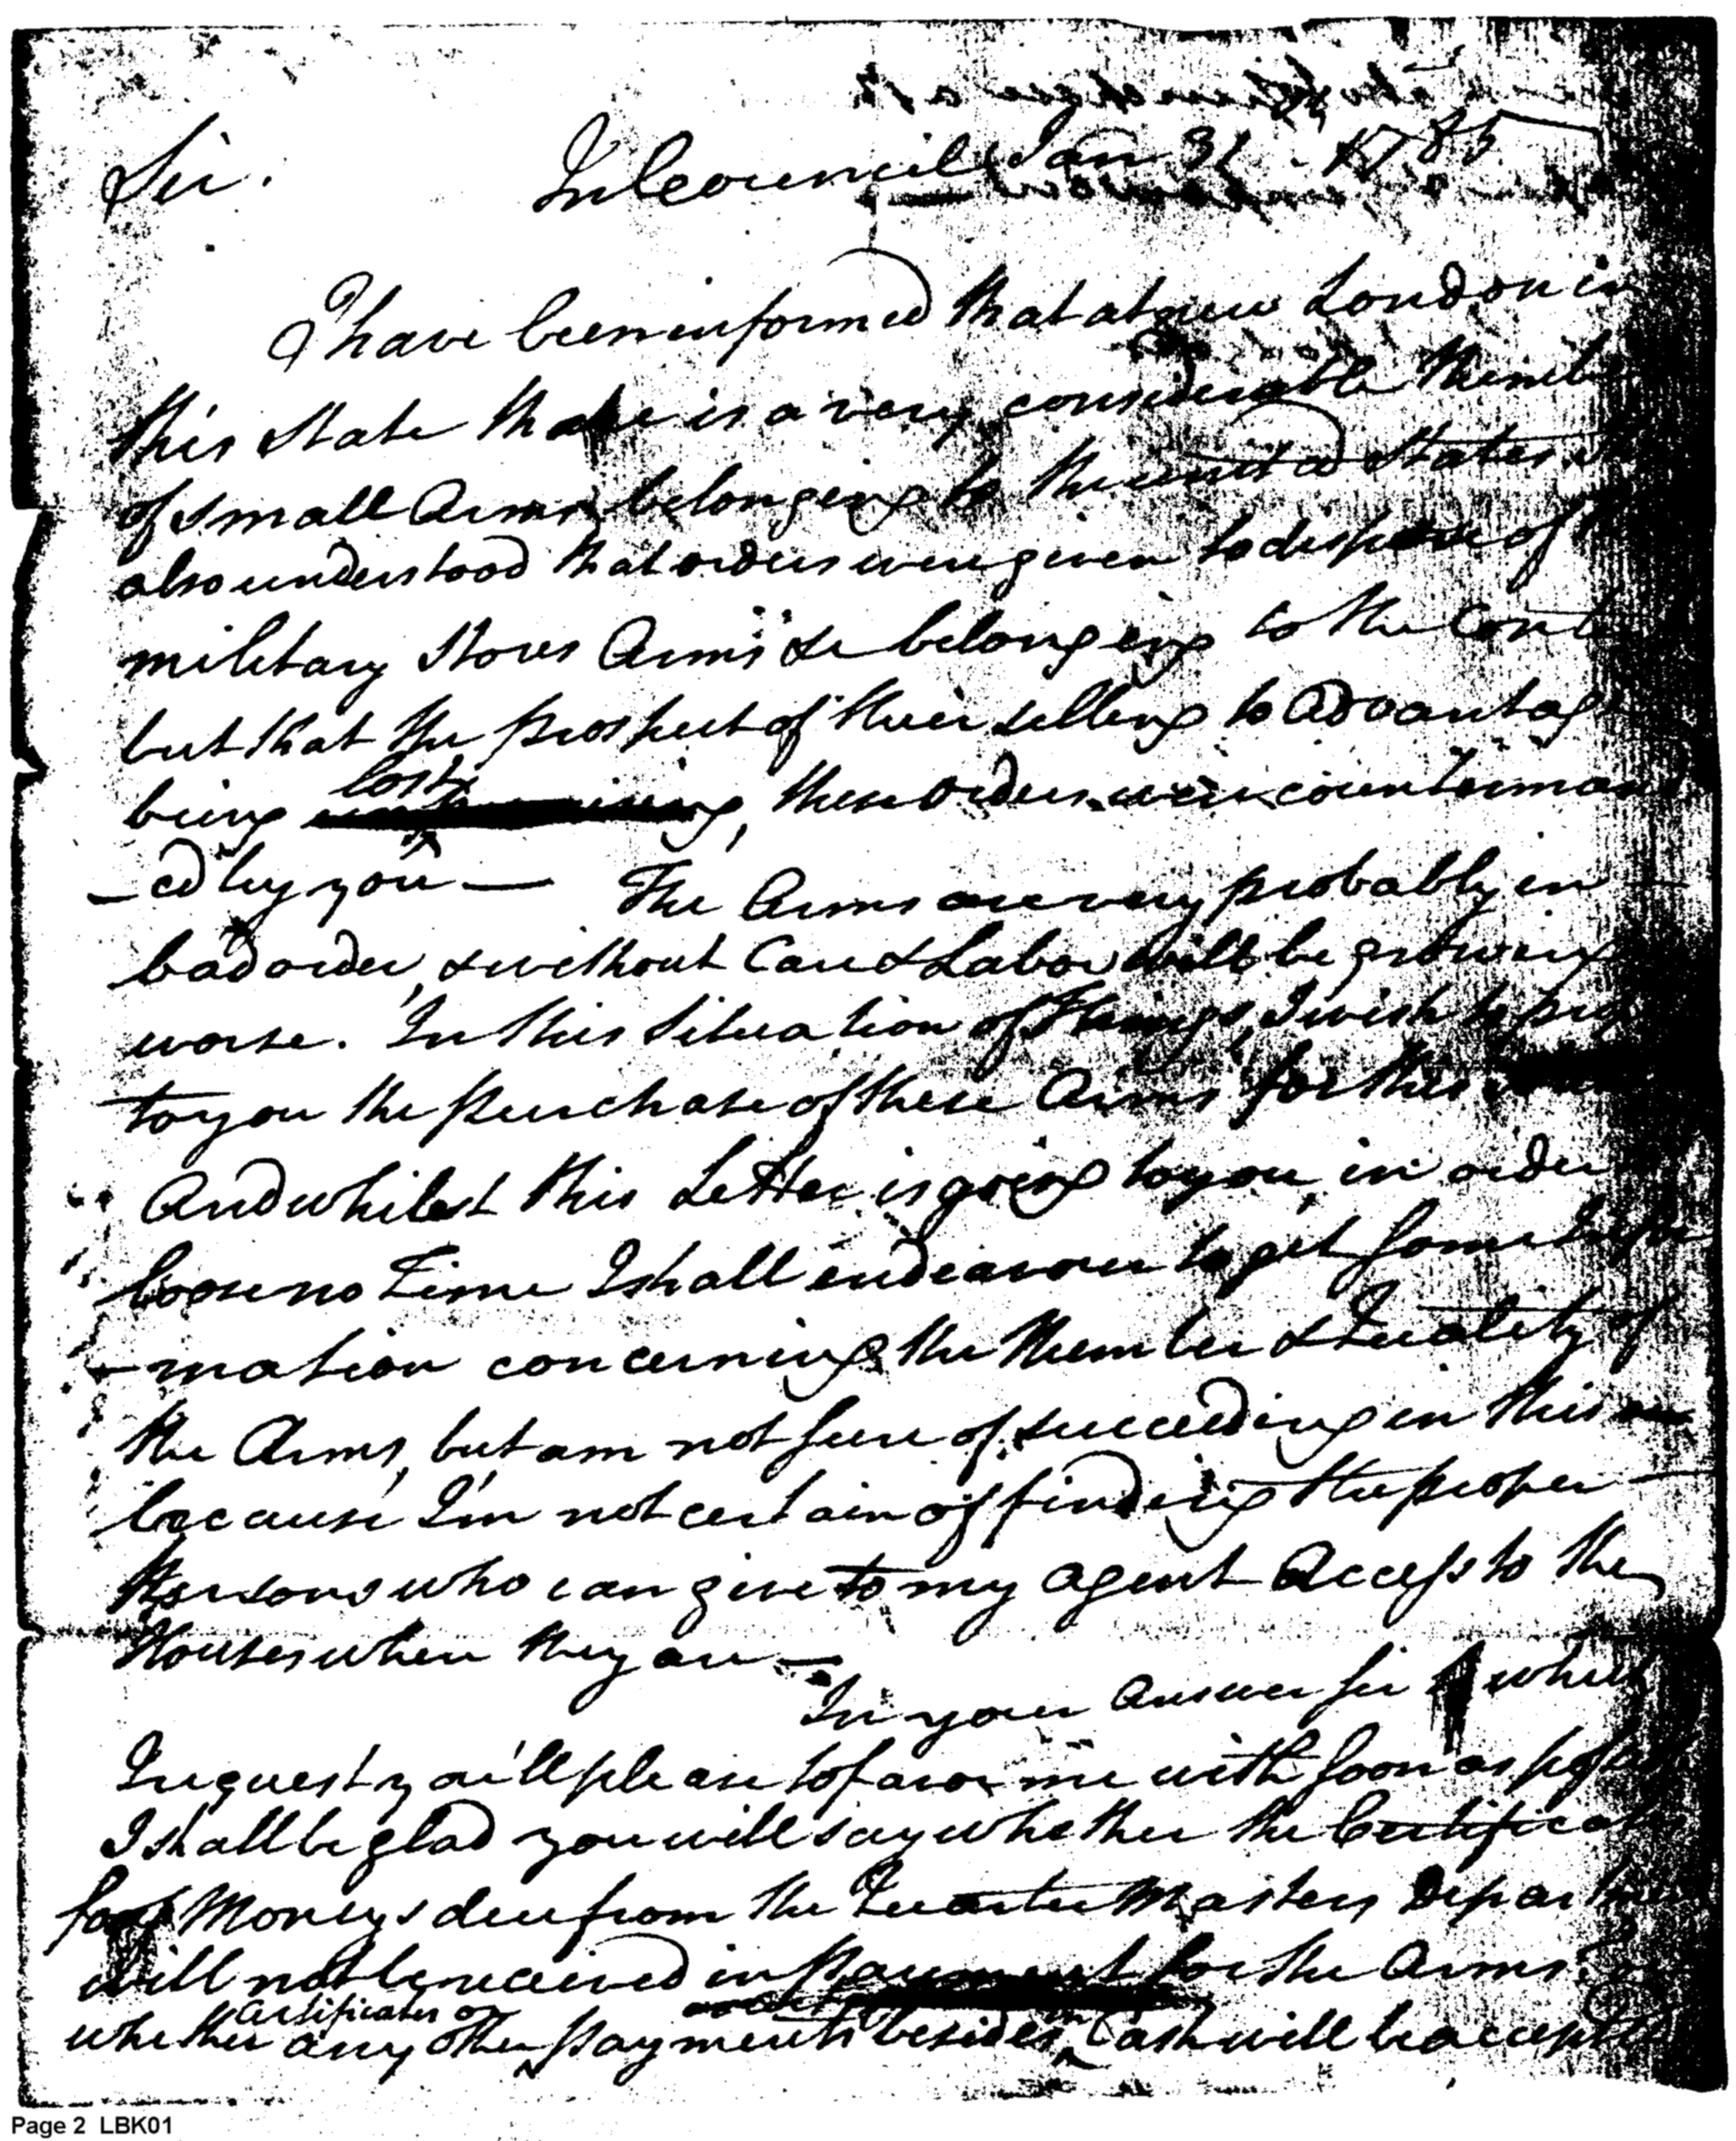 Sir. In Council Jan 31 - 1785
I have been informed that at new London in
this State there is a very considerable Number
of small Arms belonging to the united States
also understood that orders were given to dispose of
military Stores Arms &c belonging to the Cont
but that the prospect of their selling to advantag
being lost, these orders were countermand
-ed by you — The Arms are very probably in
bad order, & without Care & Labor will be growing
worse. In this Situation of Things, I wish to prop
to you the purchase of these Arms for this
And whilst this Letter is going to you, in order
loose no Time I shall endeavour to get some Infor
-mation concerning the Number & Quality of
the Arms, but am not sure of succeeding in this
because I'm not certain of finding the proper
Persons who can give to my agent Access to the
Houses where they are —
In your Answer sir which
I request you'll please to favor me with soon as poss
I shall be glad you will say whether the Certificat
for Moneys due from the Quarter Masters Departmen
will not be received in payment for the Arms.
Certificates or
whether any other payments besides in Cash will be accepted
Page 2 LBK01